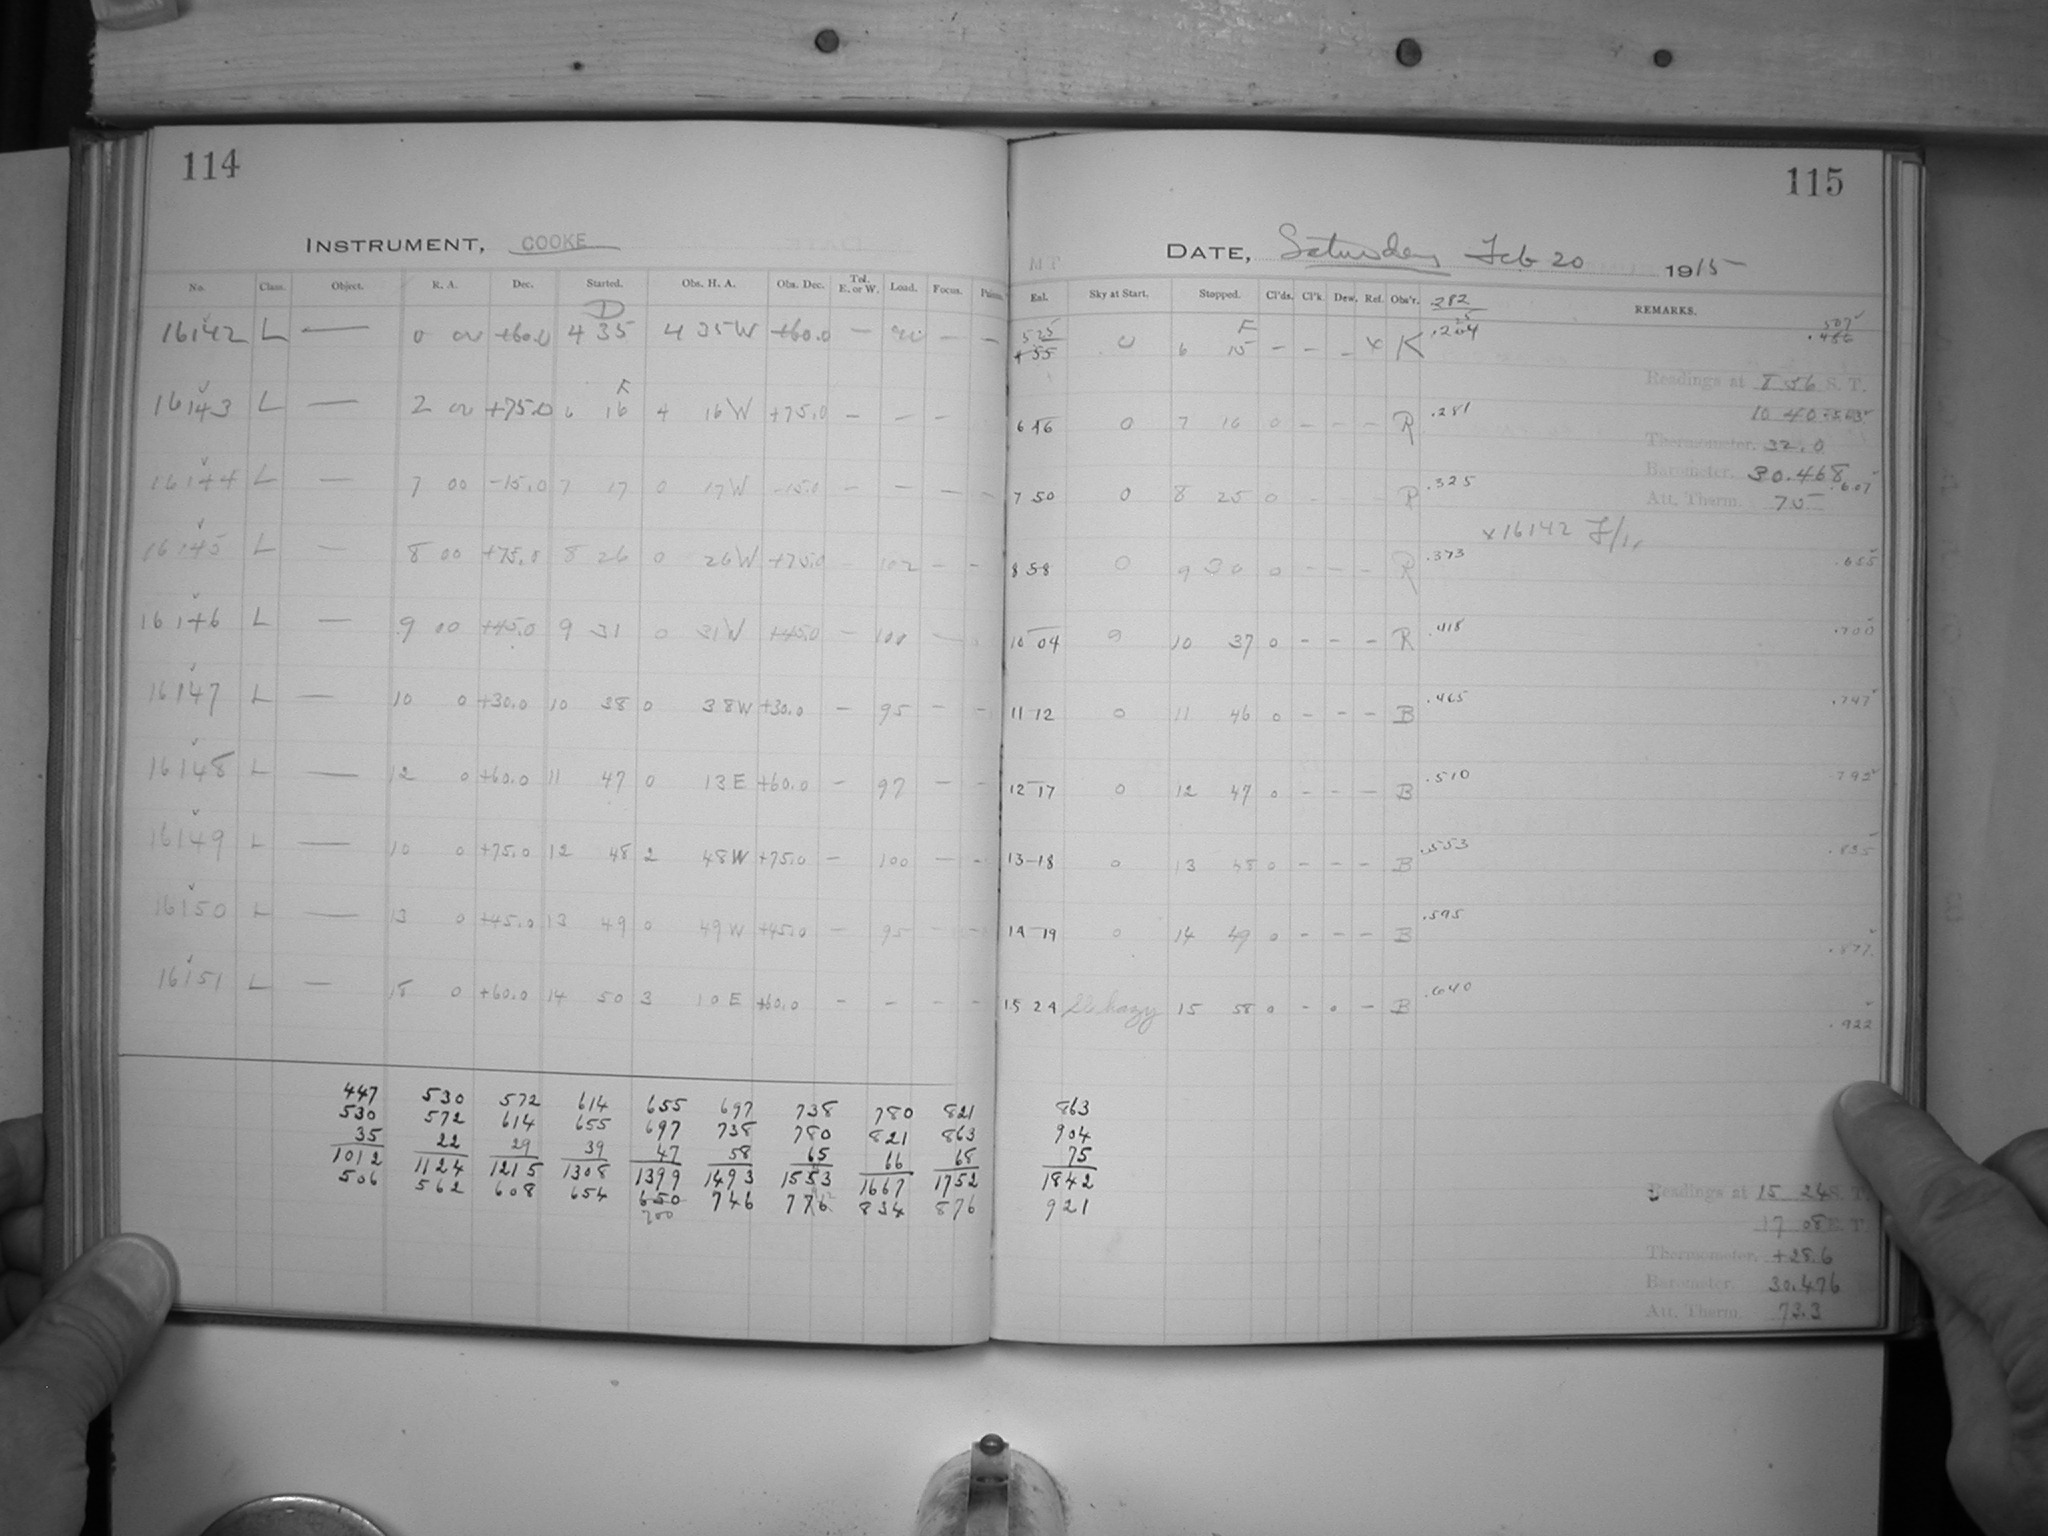 114
INSTRUMENT, COOKE
No. Class. Object. R. A. Dec. Started. Obs. H. A. Obs. Dec. Tel. E. or W. Load. Focus.
D
16142 L — 0 00 +60.0 4 35 4 35W +60.0 — — —
F
16143 L — 2 00 +75.0 6 16 4 16W +75.0 — — —
16144 L — 7 00 -15.0 7 17 0 17W -15.0 — — — —
16145 L — 8 00 +75.0 8 26 0 26W +75.0 — 102 — —
16146 L — 9 00 +45.0 9 31 0 31W +45.0 — 100 —
16147 L — 10 0 +30.0 10 38 0 38W +30.0 — 95 — —
16148 L — 12 0 +60.0 11 47 0 13E +60.0 — 97 — —
16149 L — 10 0 +75.0 12 48 2 48W +75.0 — 100 — —
16150 L — 13 0 +45.0 13 49 0 49W +45.0 — 95 — —
16151 L — 18 0 +60.0 14 50 3 10E +60.0 — — — —
447 530 572 614 655 697 738 780 821
530 572 614 655 697 738 780 821 863
35 22 29 39 47 58 65 66 68
1012 1124 1215 1308 1399 1493 1553 1667 1752
506 562 608 654 650 746 776 834 876
700
115
DATE, Saturday Feb 20 1915
Eql. Sky at Start. Stopped. Cl'ds. Cl'k. Dew. Ref. Obs'r. .282 REMARKS.
F
525 0 6 15 — — — x K .204 .507
.486
Readings at 8 56 S. T.
6 46 0 7 16 0 — — — R .281 10 40
Thermometer. 32.0
Barometer. 30.468
7 50 0 8 25 0 R .325 .607
Att. Therm. 70
x16142 F/1,
8 58 0 9 30 0 — — — R .373 .655
10 04 0 10 37 0 — — — R .418 .700
11 12 0 11 46 0 — — — B .465 .747
12 17 0 12 47 0 — — — B .510 .792
13 18 0 13 48 0 — — — B .553 .835
14 19 0 14 49 0 — — — B .595 .877
15 24 Sl. hazy 15 58 0 — 0 — B .640 .922
863
904
75
1842
921
Readings at 15 24 S. T.
17 08 E. T.
Thermometer. +28.6
Barometer. 30.476
Att. Therm. 73.3